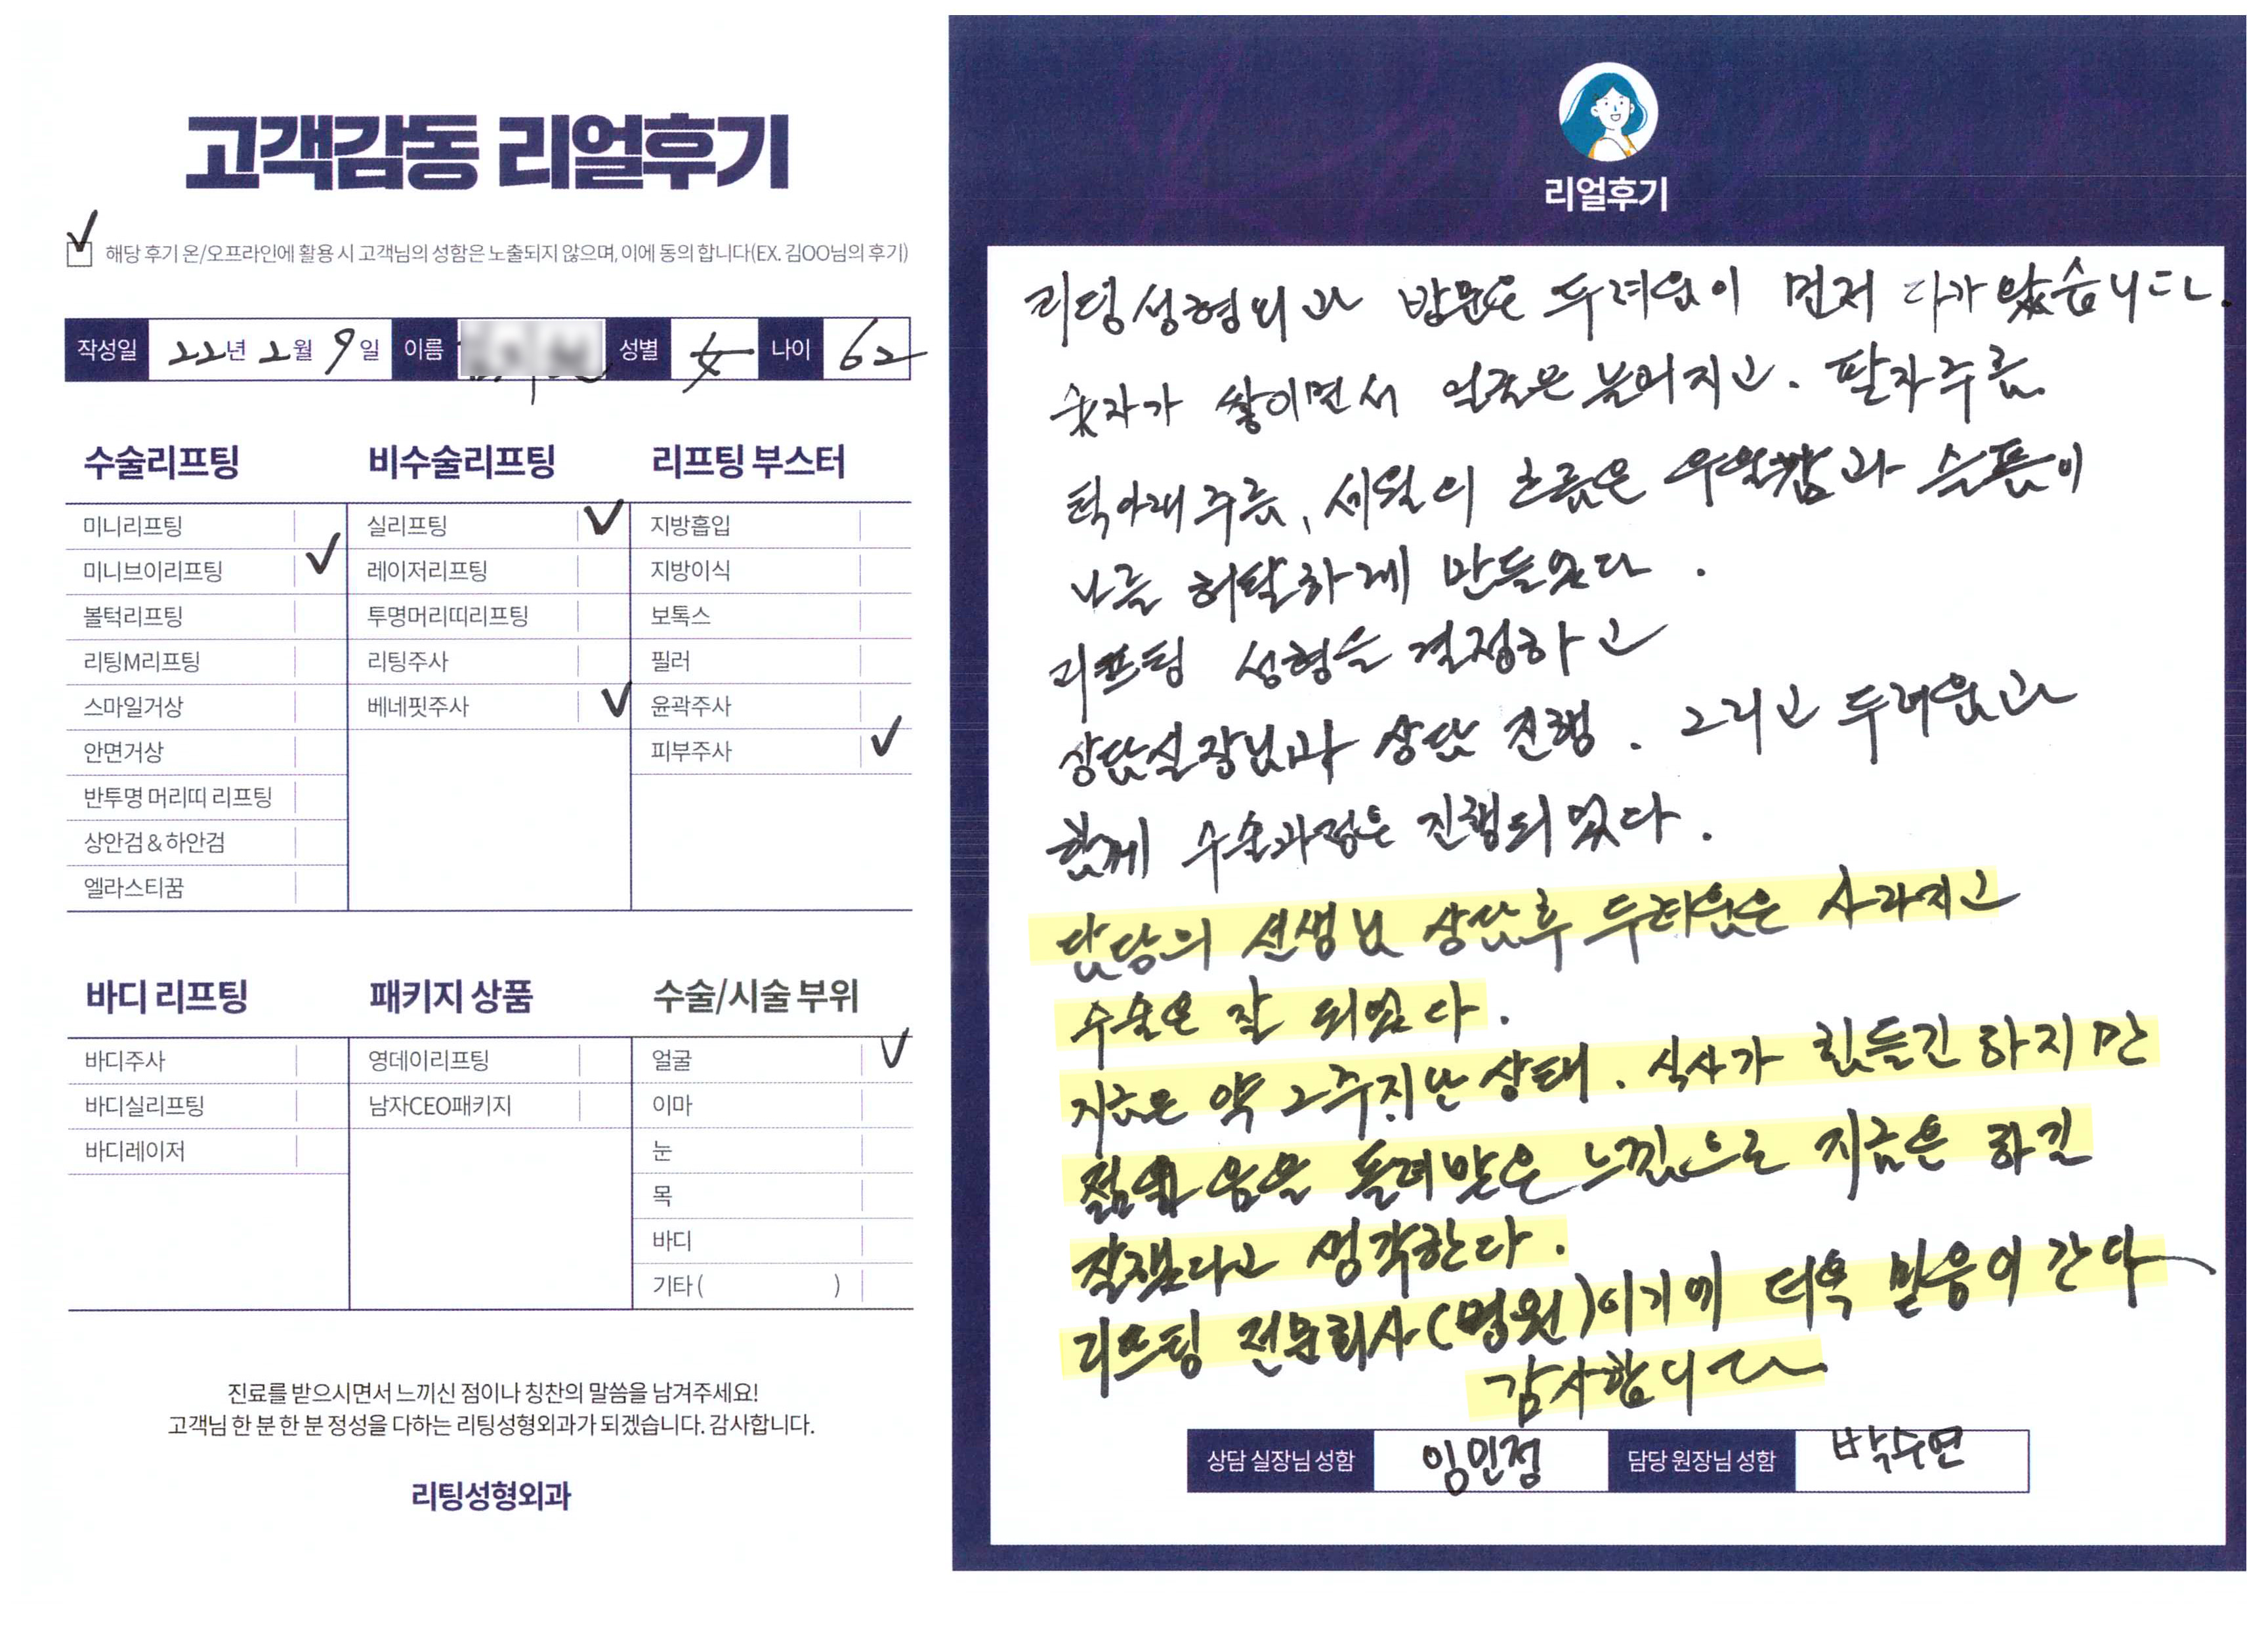 고객감동 리얼후기
✓ 해당 후기 온/오프라인에 활용 시 고객님의 성함은 노출되지 않으며, 이에 동의 합니다(EX. 김OO님의 후기)
작성일 22년 2월 9일 이름 성별 女 나이 62
수술리프팅
미니리프팅
미니브이리프팅 ✓
볼턱리프팅
리팅M리프팅
스마일거상
안면거상
반투명 머리띠 리프팅
상안검 & 하안검
엘라스티꿈
비수술리프팅
실리프팅 ✓
레이저리프팅
투명머리띠리프팅
리팅주사
베네핏주사 ✓
리프팅 부스터
지방흡입
지방이식
보톡스
필러
윤곽주사
피부주사 ✓
바디 리프팅
바디주사
바디실리프팅
바디레이저
패키지 상품
영데이리프팅
남자CEO패키지
수술/시술 부위
얼굴 ✓
이마
눈
목
바디
기타 ( )
진료를 받으시면서 느끼신 점이나 칭찬의 말씀을 남겨주세요!
고객님 한 분 한 분 정성을 다하는 리팅성형외과가 되겠습니다. 감사합니다.
리팅성형외과
리얼후기
리팅성형외과 방문은 두려움이 먼저 다가왔습니다.
숫자가 쌓이면서 얼굴은 늘어지고. 팔자주름
턱아래 주름, 세월의 흐름은 우울감과 슬픔이
나를 허탈하게 만들었다.
리프팅 성형을 결정하고
상담실장님과 상담 진행. 그리고 두려움과
함께 수술과정은 진행되었다.
담당의 선생님 상담후 두려움은 사라지고
수술은 잘 되었다.
지금은 약 2주지난 상태. 식사가 힘들긴 하지만
젊음을 돌려받은 느낌으로 지금은 하길
잘했다고 생각한다.
리프팅 전문회사(병원)이기에 더욱 믿음이 간다
감사합니다
상담 실장님 성함 임민정 담당 원장님 성함 박수연